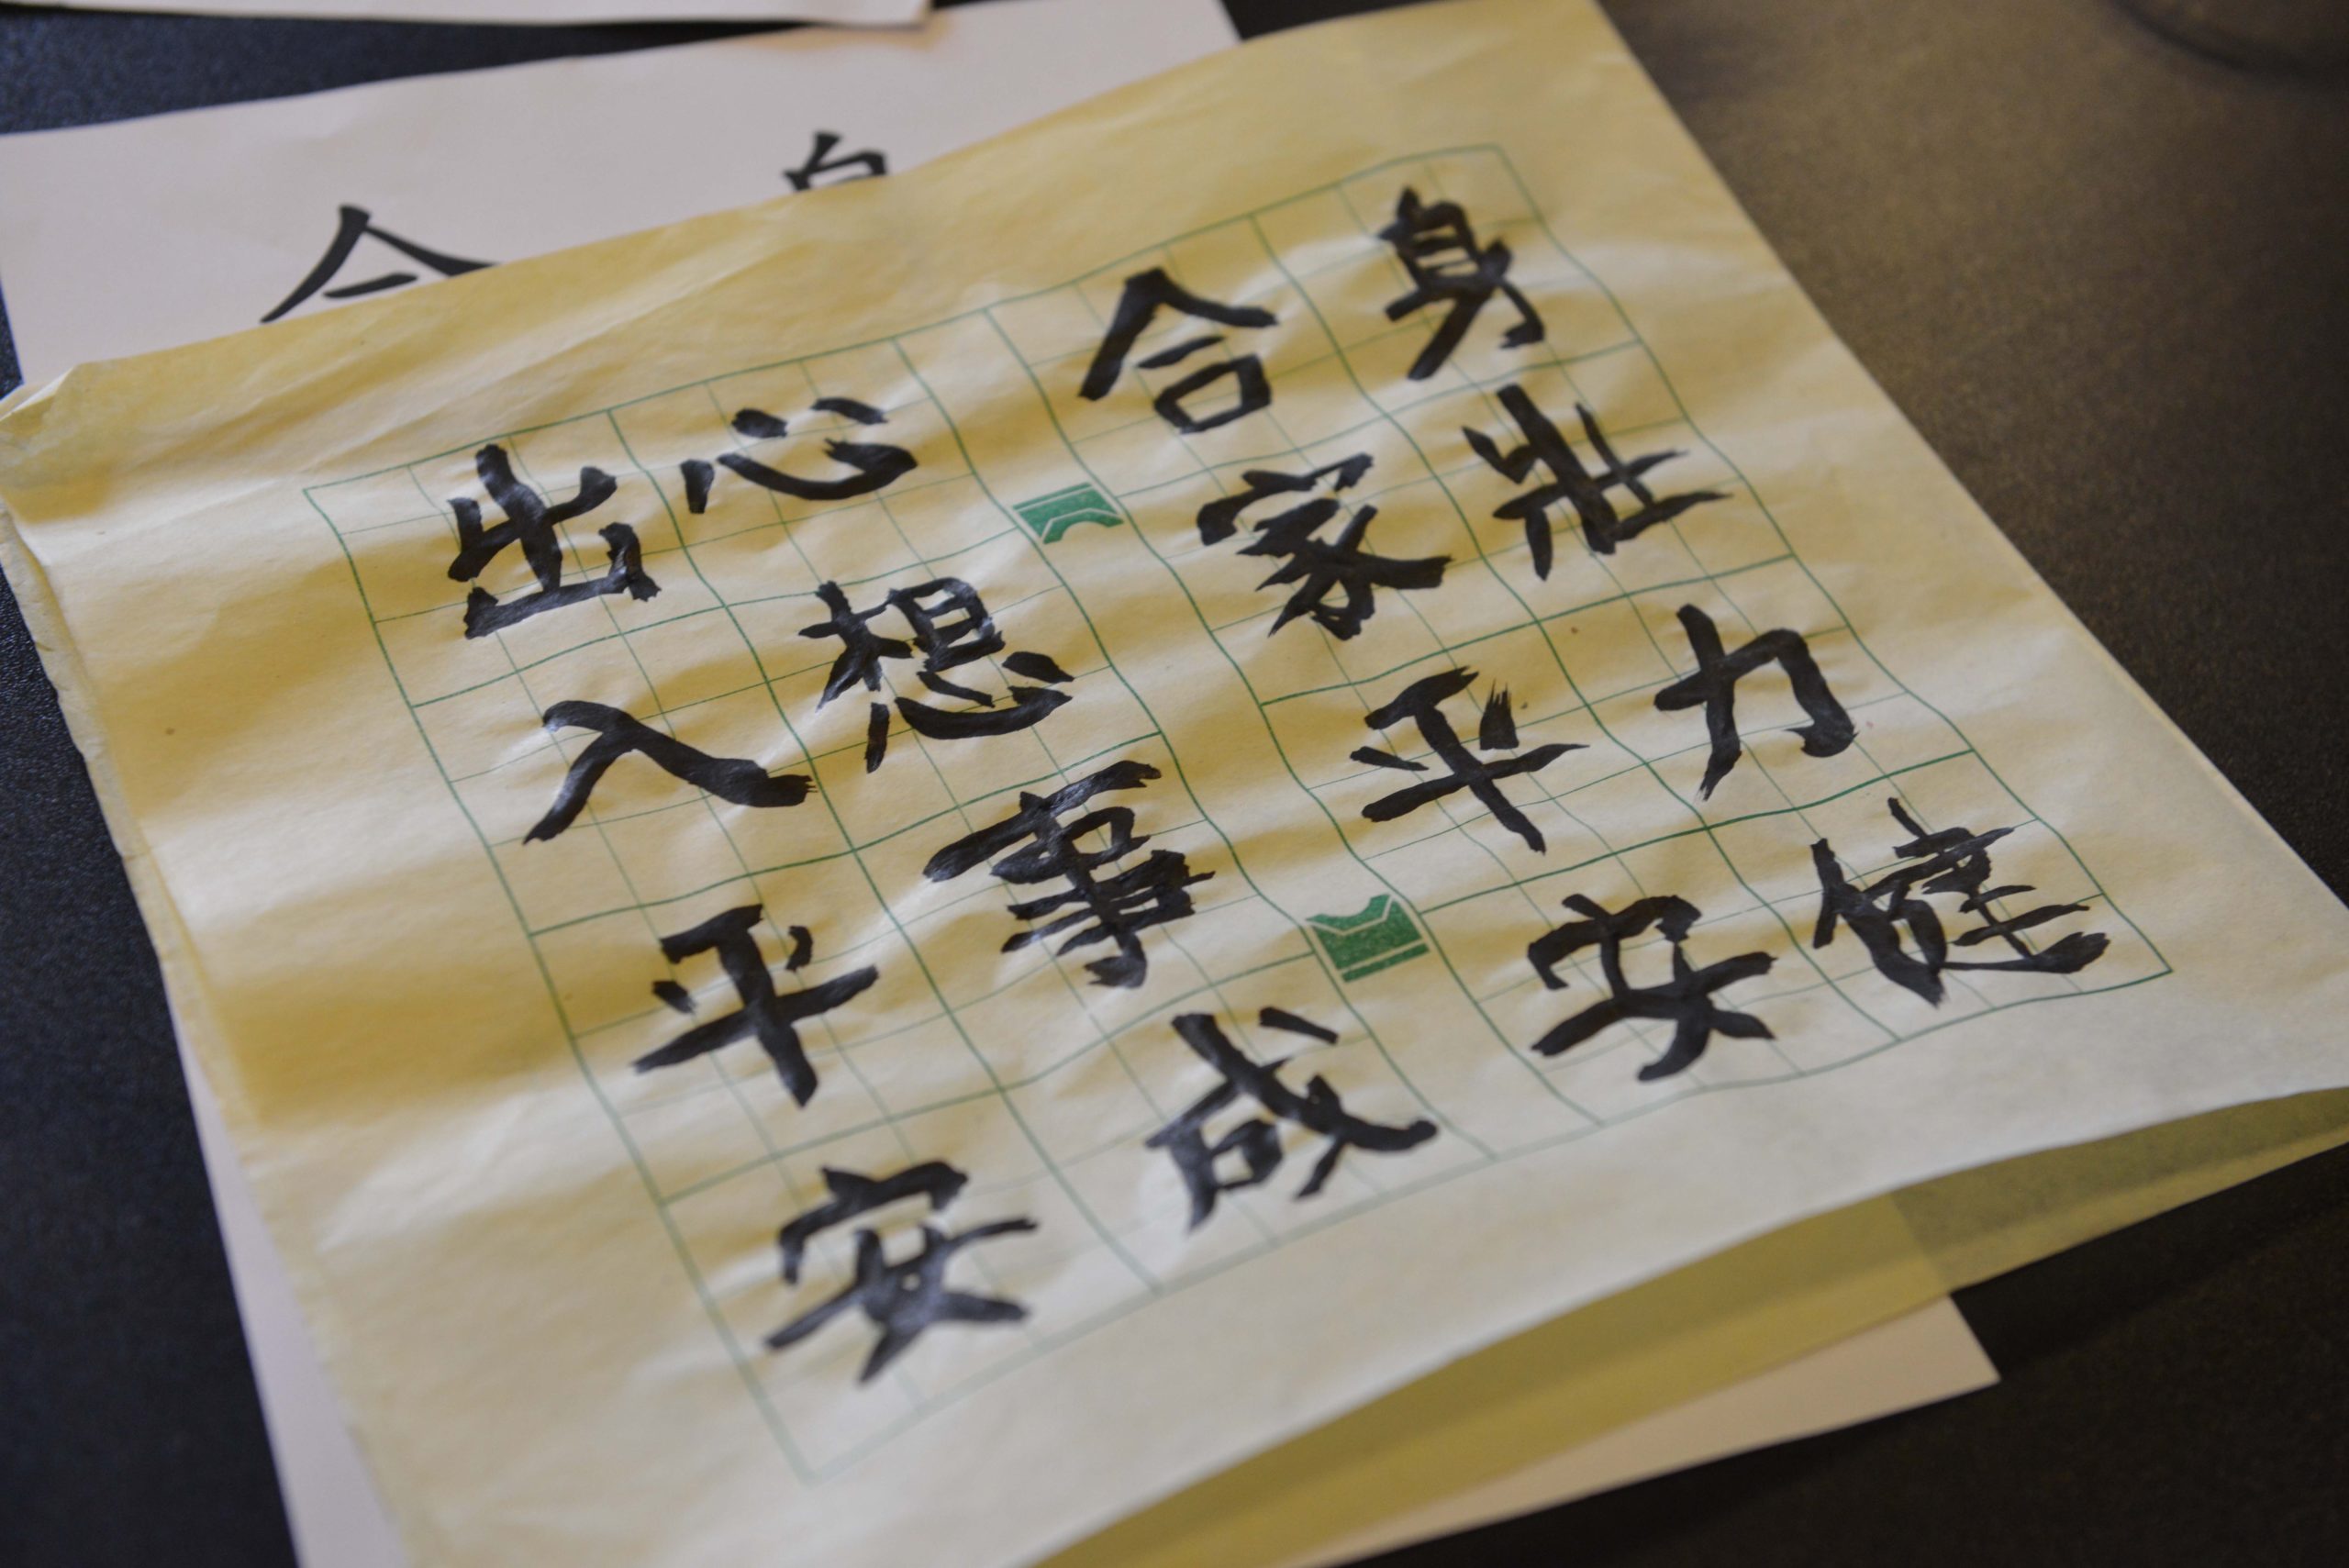 身壯力健
合家平安
心想事成
出入平安